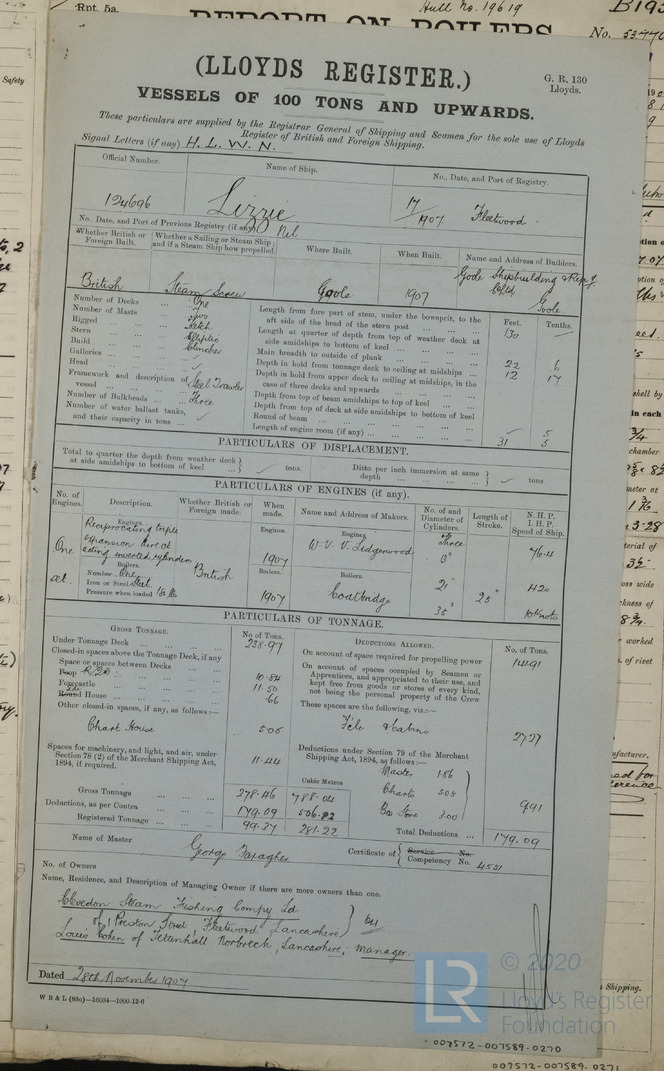 Rpt. 5a.
Hull No. 19619
REPORT ON BOILERS
No. 53770
(LLOYDS REGISTER.)
G. R. 130
Lloyds.
VESSELS OF 100 TONS AND UPWARDS.
These particulars are supplied by the Registrar General of Shipping and Seamen for the sole use of Lloyds
Register of British and Foreign Shipping.
Signal Letters (if any) H. L. W. N.
Official Number. Name of Ship. No., Date, and Port of Registry.
124696 Lizzie 17/1907 Fleetwood.
No., Date, and Port of Previous Registry (if any) Nil
Whether British or Foreign Built. Whether a Sailing or Steam Ship; and if a Steam Ship how propelled. Where Built. When Built. Name and Address of Builders.
British Steam Screw Goole 1907 Goole Shipbuilding & Rep g.
Goole
Number of Decks ... One
Number of Masts ... Two
Rigged ... Ketch
Stern ... Elliptic
Build ... Clincher
Galleries ...
Head ...
Framework and description of vessel ... Steel Trawler
Number of Bulkheads ... Three
Number of water ballast tanks, and their capacity in tons ...
Feet. Tenths.
Length from fore part of stem, under the bowsprit, to the aft side of the head of the stern post ... 130
Length at quarter of depth from top of weather deck at side amidships to bottom of keel ...
Main breadth to outside of plank ... 22 6
Depth in hold from tonnage deck to ceiling at midships ... 12 17
Depth in hold from upper deck to ceiling at midships, in the case of three decks and upwards ...
Depth from top of beam amidships to top of keel ...
Depth from top of deck at side amidships to bottom of keel
Round of beam ... 5
Length of engine room (if any) ... 31 5
PARTICULARS OF DISPLACEMENT.
Total to quarter the depth from weather deck at side amidships to bottom of keel ... tons. Ditto per inch immersion at same depth ... tons.
PARTICULARS OF ENGINES (if any).
No. of Engines. Description. Whether British or Foreign made. When made. Name and Address of Makers. No. of and Diameter of Cylinders. Length of Stroke. N. H. P. I. H. P. Speed of Ship.
Engines. Engines. Engines.
Reciprocating triple expansion direct acting inverted cylinder
One British 1907 W. V. V. Lidgerwood Three 13" 76.4
Boilers. Boilers. Boilers.
Number One
Iron or Steel Steel
Pressure when loaded 180 lbs
1907 Coatbridge 21" 35" 25" 420 10 knots
PARTICULARS OF TONNAGE.
GROSS TONNAGE. No. of Tons.
Under Tonnage Deck ... 238.97
Closed-in spaces above the Tonnage Deck, if any
Space or spaces between Decks ...
Poop ... 10.84
Forecastle ... 11.50
Round House ... .66
Other closed-in spaces, if any, as follows:—
Chart House 5.05
Spaces for machinery, and light, and air, under Section 78 (2) of the Merchant Shipping Act, 1894, if required. 11.44
DEDUCTIONS ALLOWED. No. of Tons.
On account of space required for propelling power 141.91
On account of spaces occupied by Seamen or Apprentices, and appropriated to their use, and kept free from goods or stores of every kind, not being the personal property of the Crew
These spaces are the following, viz.:—
F'cle & Cabins 27.27
Deductions under Section 79 of the Merchant Shipping Act, 1894, as follows:—
Master 1.86
Charts 5.05
Bo. Store 3.00
9.91
Cubic Metres
Gross Tonnage ... 278.46 788.04
Deductions, as per Contra ... 179.09 506.82
Registered Tonnage ... 99.37 281.22
Total Deductions ... 179.09
Name of Master George Faragher Certificate of Service No. Competency No. 4531
No. of Owners
Name, Residence, and Description of Managing Owner if there are more owners than one.
Clevedon Steam Fishing Compy Ld
of 1 Preston Street, Fleetwood, Lancashire 64
Louis Cohen of Tettenhall Norbreck, Lancashire, manager.
Dated 28th November 1907
W B & L (83o)—16034—1000-12-6
© 2020
LR
Lloyd's Register
Foundation
007572-007589-0270
007572-007589-0271